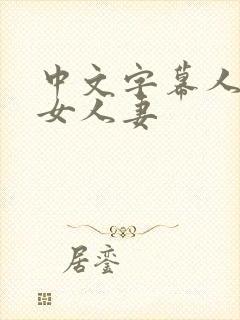 中文字幕人
女人妻
居銮